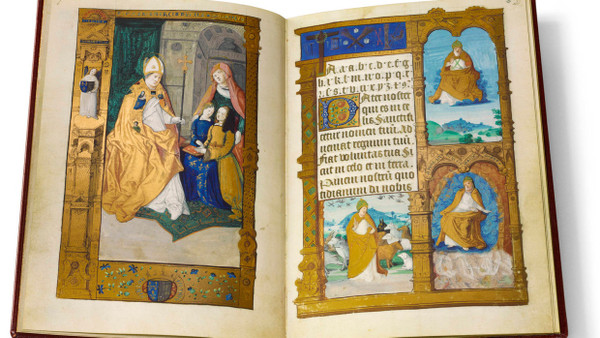 A.a.b.c.d.e.f.g
h.i.k.l.m.n.o.p.q.r
s.t.v.u.x.y.z.
Pater noster
qui es in ce
lis Sanctifi
cetur nomen tuū. Ad
ueniat regnum tuū.
Fiat voluntas tua Si
cut in celo et in terra.
Panem nostrū quo
tidianum da nobis